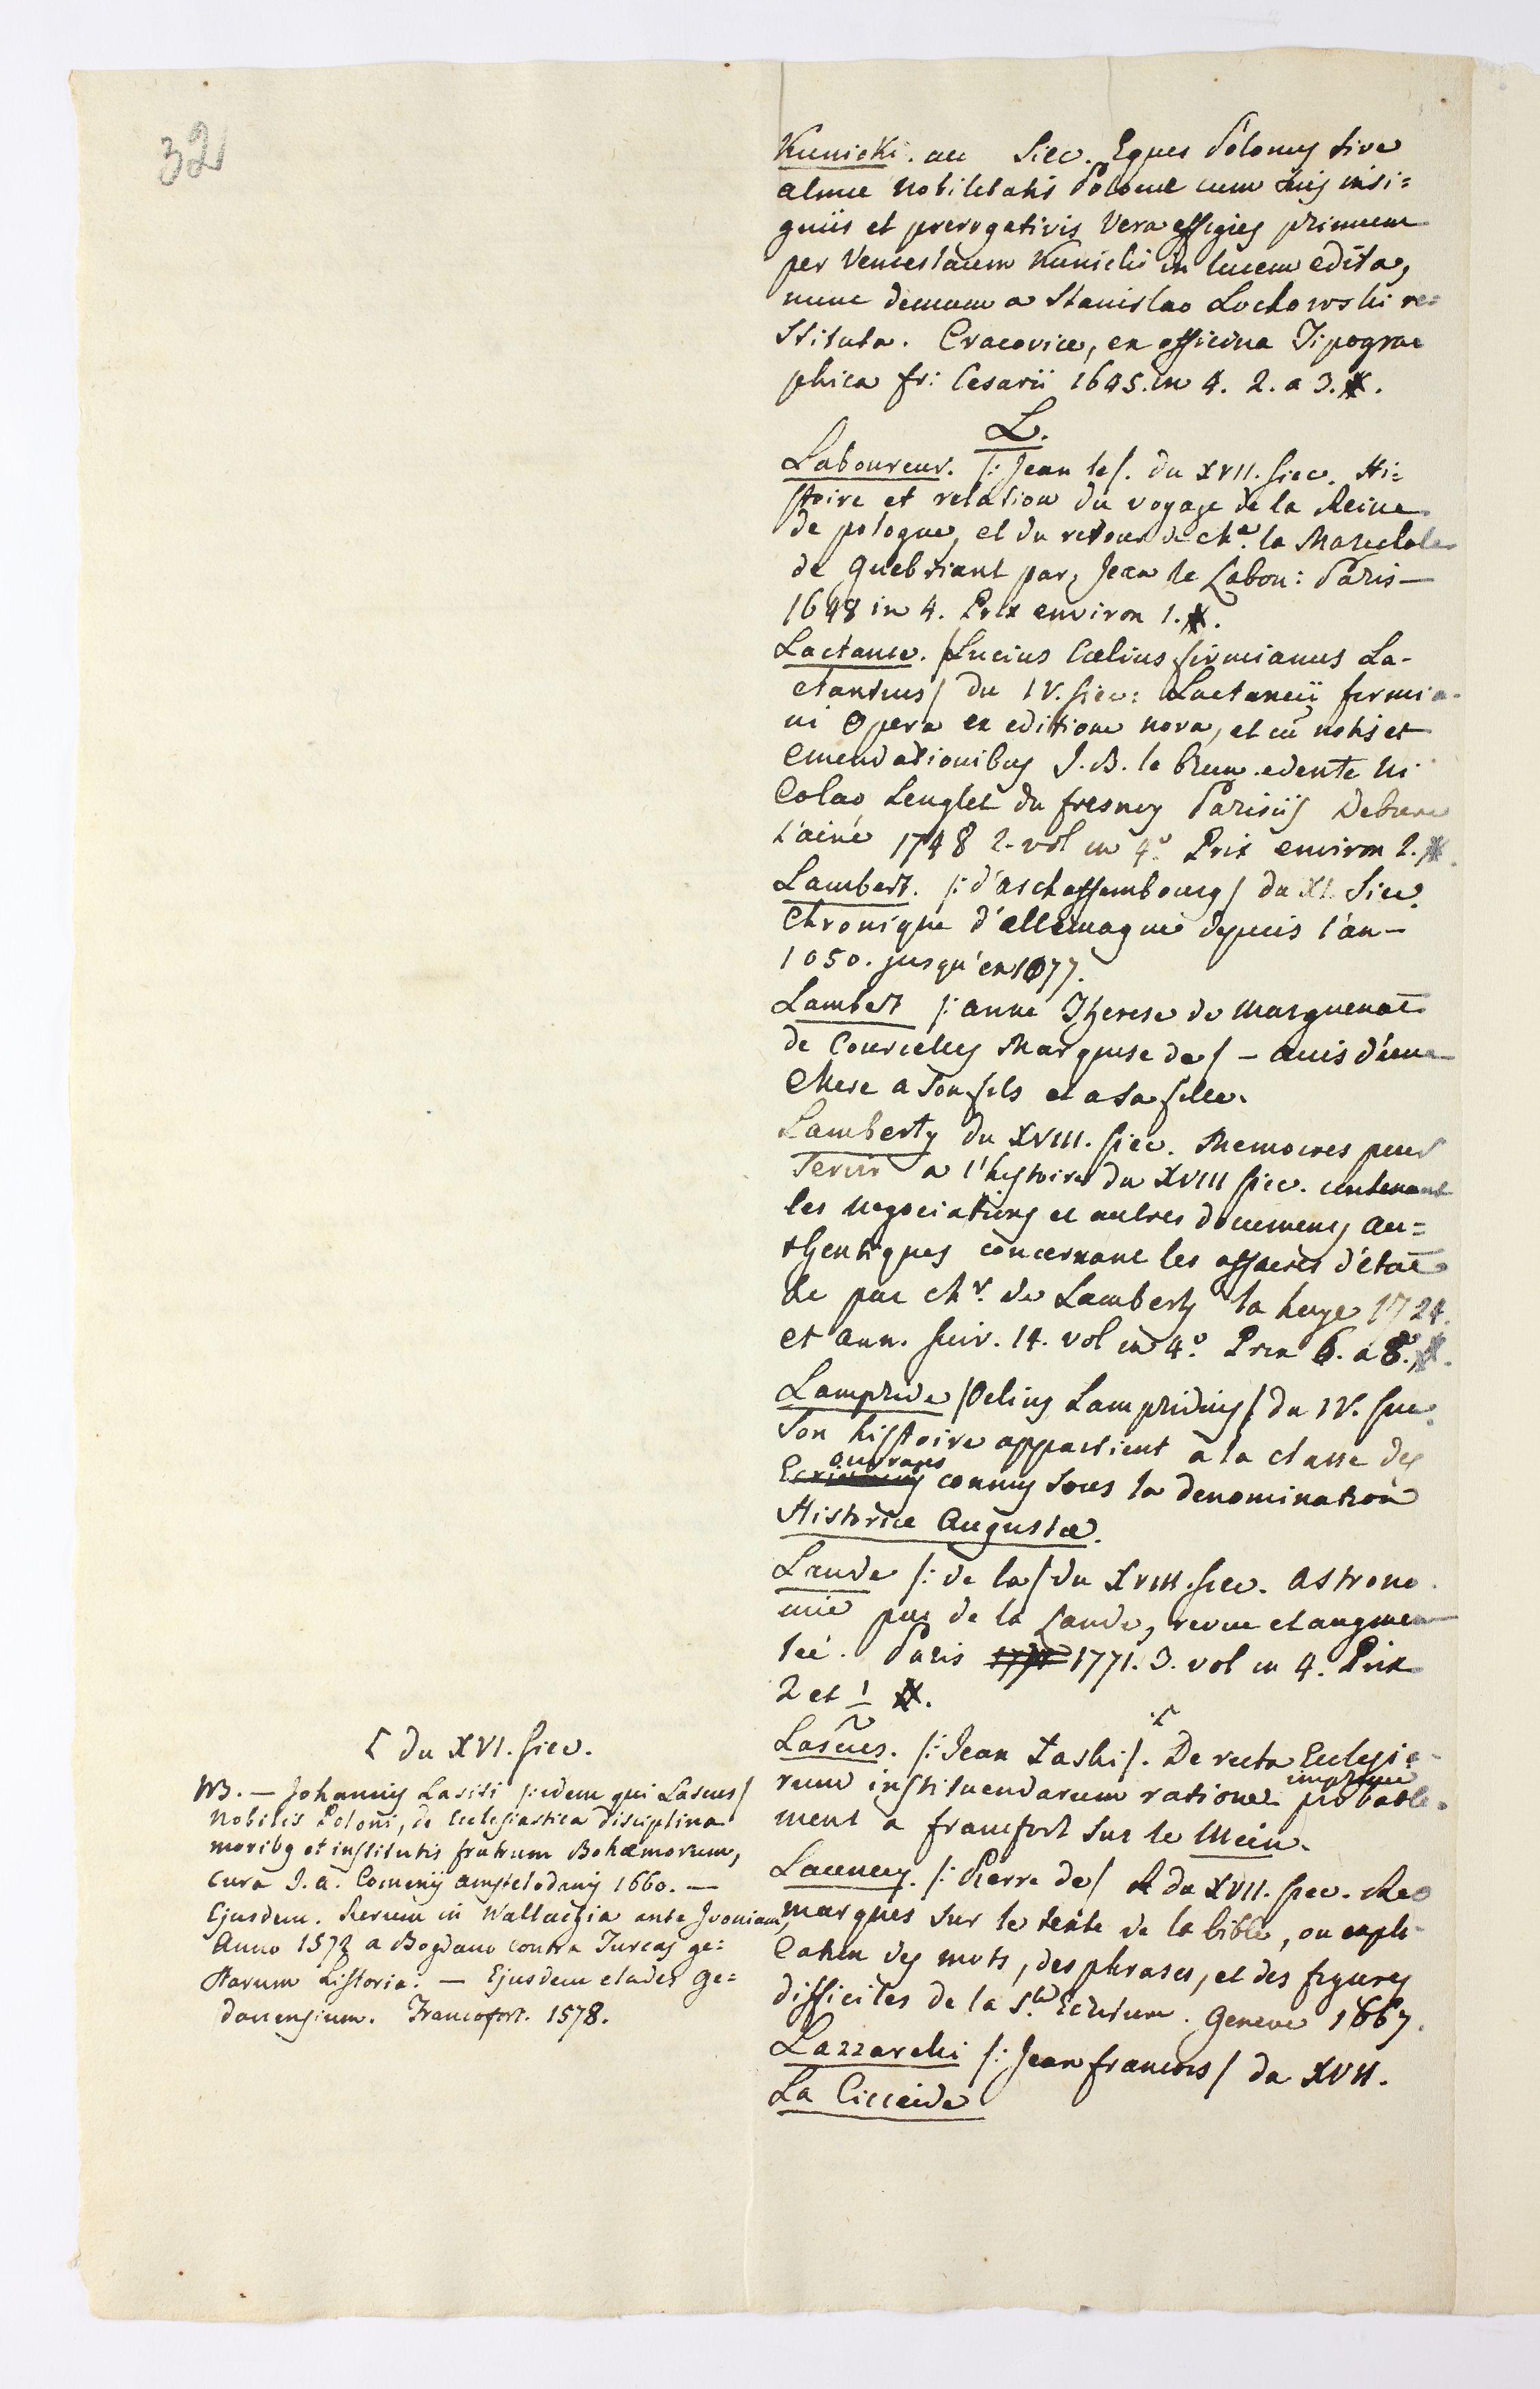 32
Kunicki. au Siec. Eques Polonus sive
almæ Nobilitatis Polonæ cum suis insi=
gniis et prerogativis Vera effigies primum
per Venceslaum Kunicki in lucem edita,
nunc demum a Stanislao Lochowski re=
stituta. Cracoviæ, ex officina Tipogra
phica fr: Cesarii 1645. in 4. 2. a 3. #.
L.
Laboureur. /: Jean le/. du XVII. siec. Hi=
stoire et relation du voyage de la Reine
de pologne, et du retour de la Marechale
de Guebriant par Jean le Labou: Paris —
1648 in 4. Prix environ 1. #.
Lactance. /Lucius Cœlius firmianus La-
ctantius/ du IV. siec: Lactancii firmia-
ni Opera ex editione nova, et cũ notis et
emendationibus J. B. le Brun. edente Ni
colao Lenglet du fresnoy Parisiis Debure
l'ainé 1748 2. vol in 4.º Prix environ 2. #.
Lambert. /: d'aschaffembourg/ du XI. Siec.
Chronique d'allemagne depuis l'an —
1050. jusqu'en 1077.
Lambert /: anne Therese de Marguenat
de Courcelles Marquise de/ — avis d'une
Mere a son fils et a sa fille.
Lamberty du XVIII. siec. Memoires pour
servir a l'histoire du XVIII siec. contenant
les negociations et autres documens au=
thentiques concernant les affaires d'état
de par chr. de Lamberty la haye 1724.
et ann. suiv. 14. vol in 4.º Prix 6. a 8. #.
Lampride /Oelius Lampridius/ du IV. siec.
Son histoire appartient à la classe des
ouvrages
connus sous la denomination
Historiæ Augustæ.
Lande /: de la/ du XVIII. siec. Astrono
mie par de la Lande, revue et augmen
teé. Paris 1771. 3. vol in 4. Prix
2 et 1/2 #.
Lascus. /: Jean Laski/. De recta Ecclesia-
rum instituendarum ratione imprimé probable-
ment a francfort sur le Mein.
Launay. /: Pierre de/ du XVII. siec. Re
marques sur le texte de la bible, ou expli-
cation des mots, des phrases, et des figures
difficiles de la Ste Ecriture. Geneve 1667.
Lazzarelli /: Jean francois/ du XVII.
La Cicceide
du XVI. siec.
NB. — Johannis Lasiti /: idem qui Lascus/
Nobilis Poloni, de Ecclesiastica disciplina
moribq et institutis fratrum Bohæmorum,
cura J. A. Comenij Amstelodamj 1660. —
Ejusdem. Rerum in Wallachia ante Ivoniam,
Anno 1572 a Bogdano contra Turcas ge=
starum historia. — Ejusdem clades Ge=
danensium. Francofort. 1578.